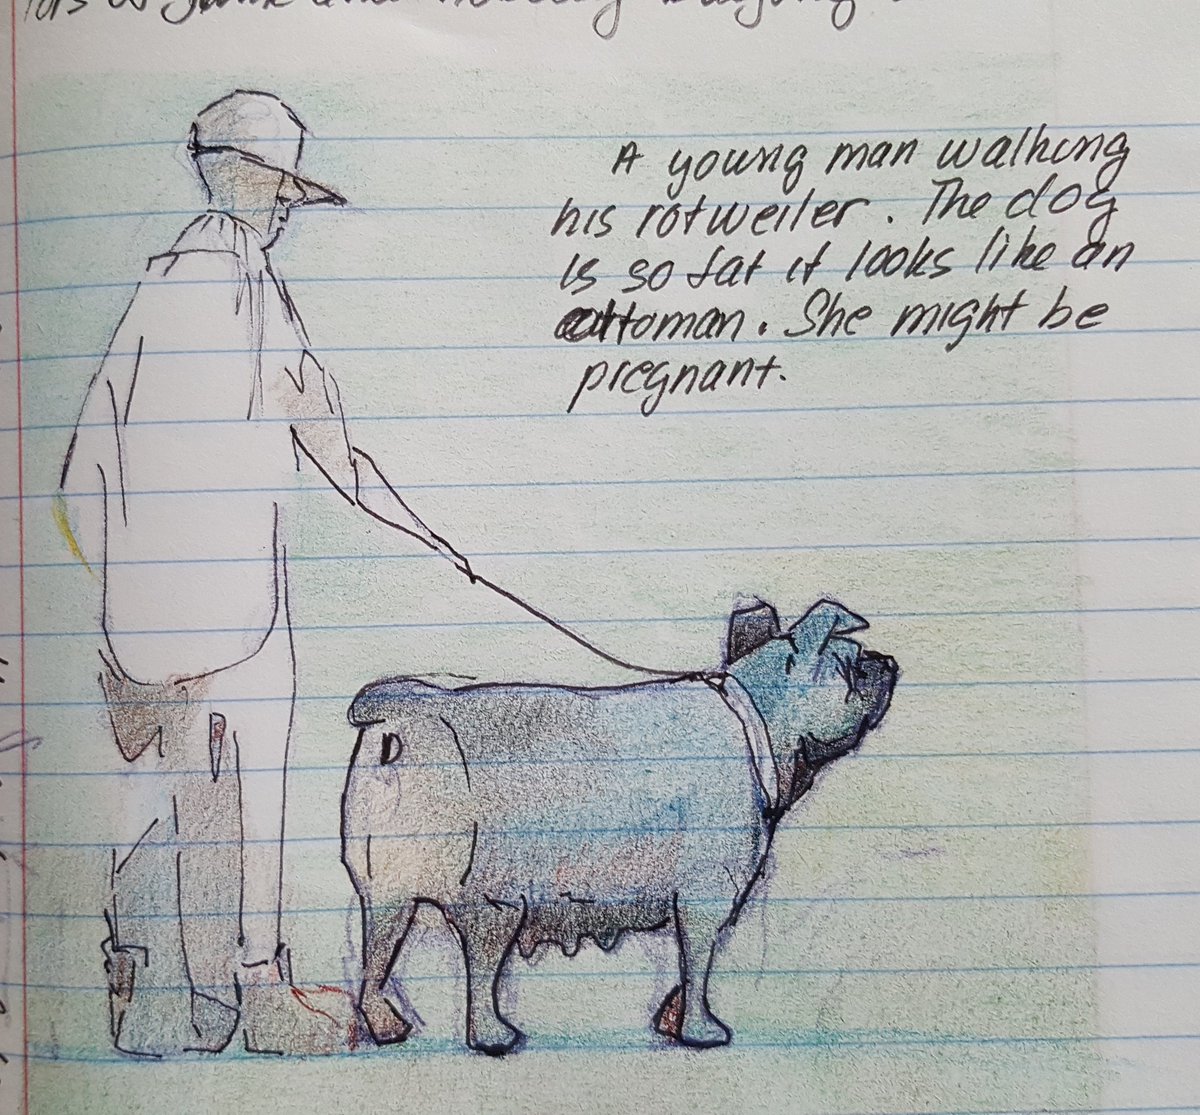 A young man walking
his rotweiler. The dog
is so fat it looks like an
ottoman. She might be
pregnant.
D